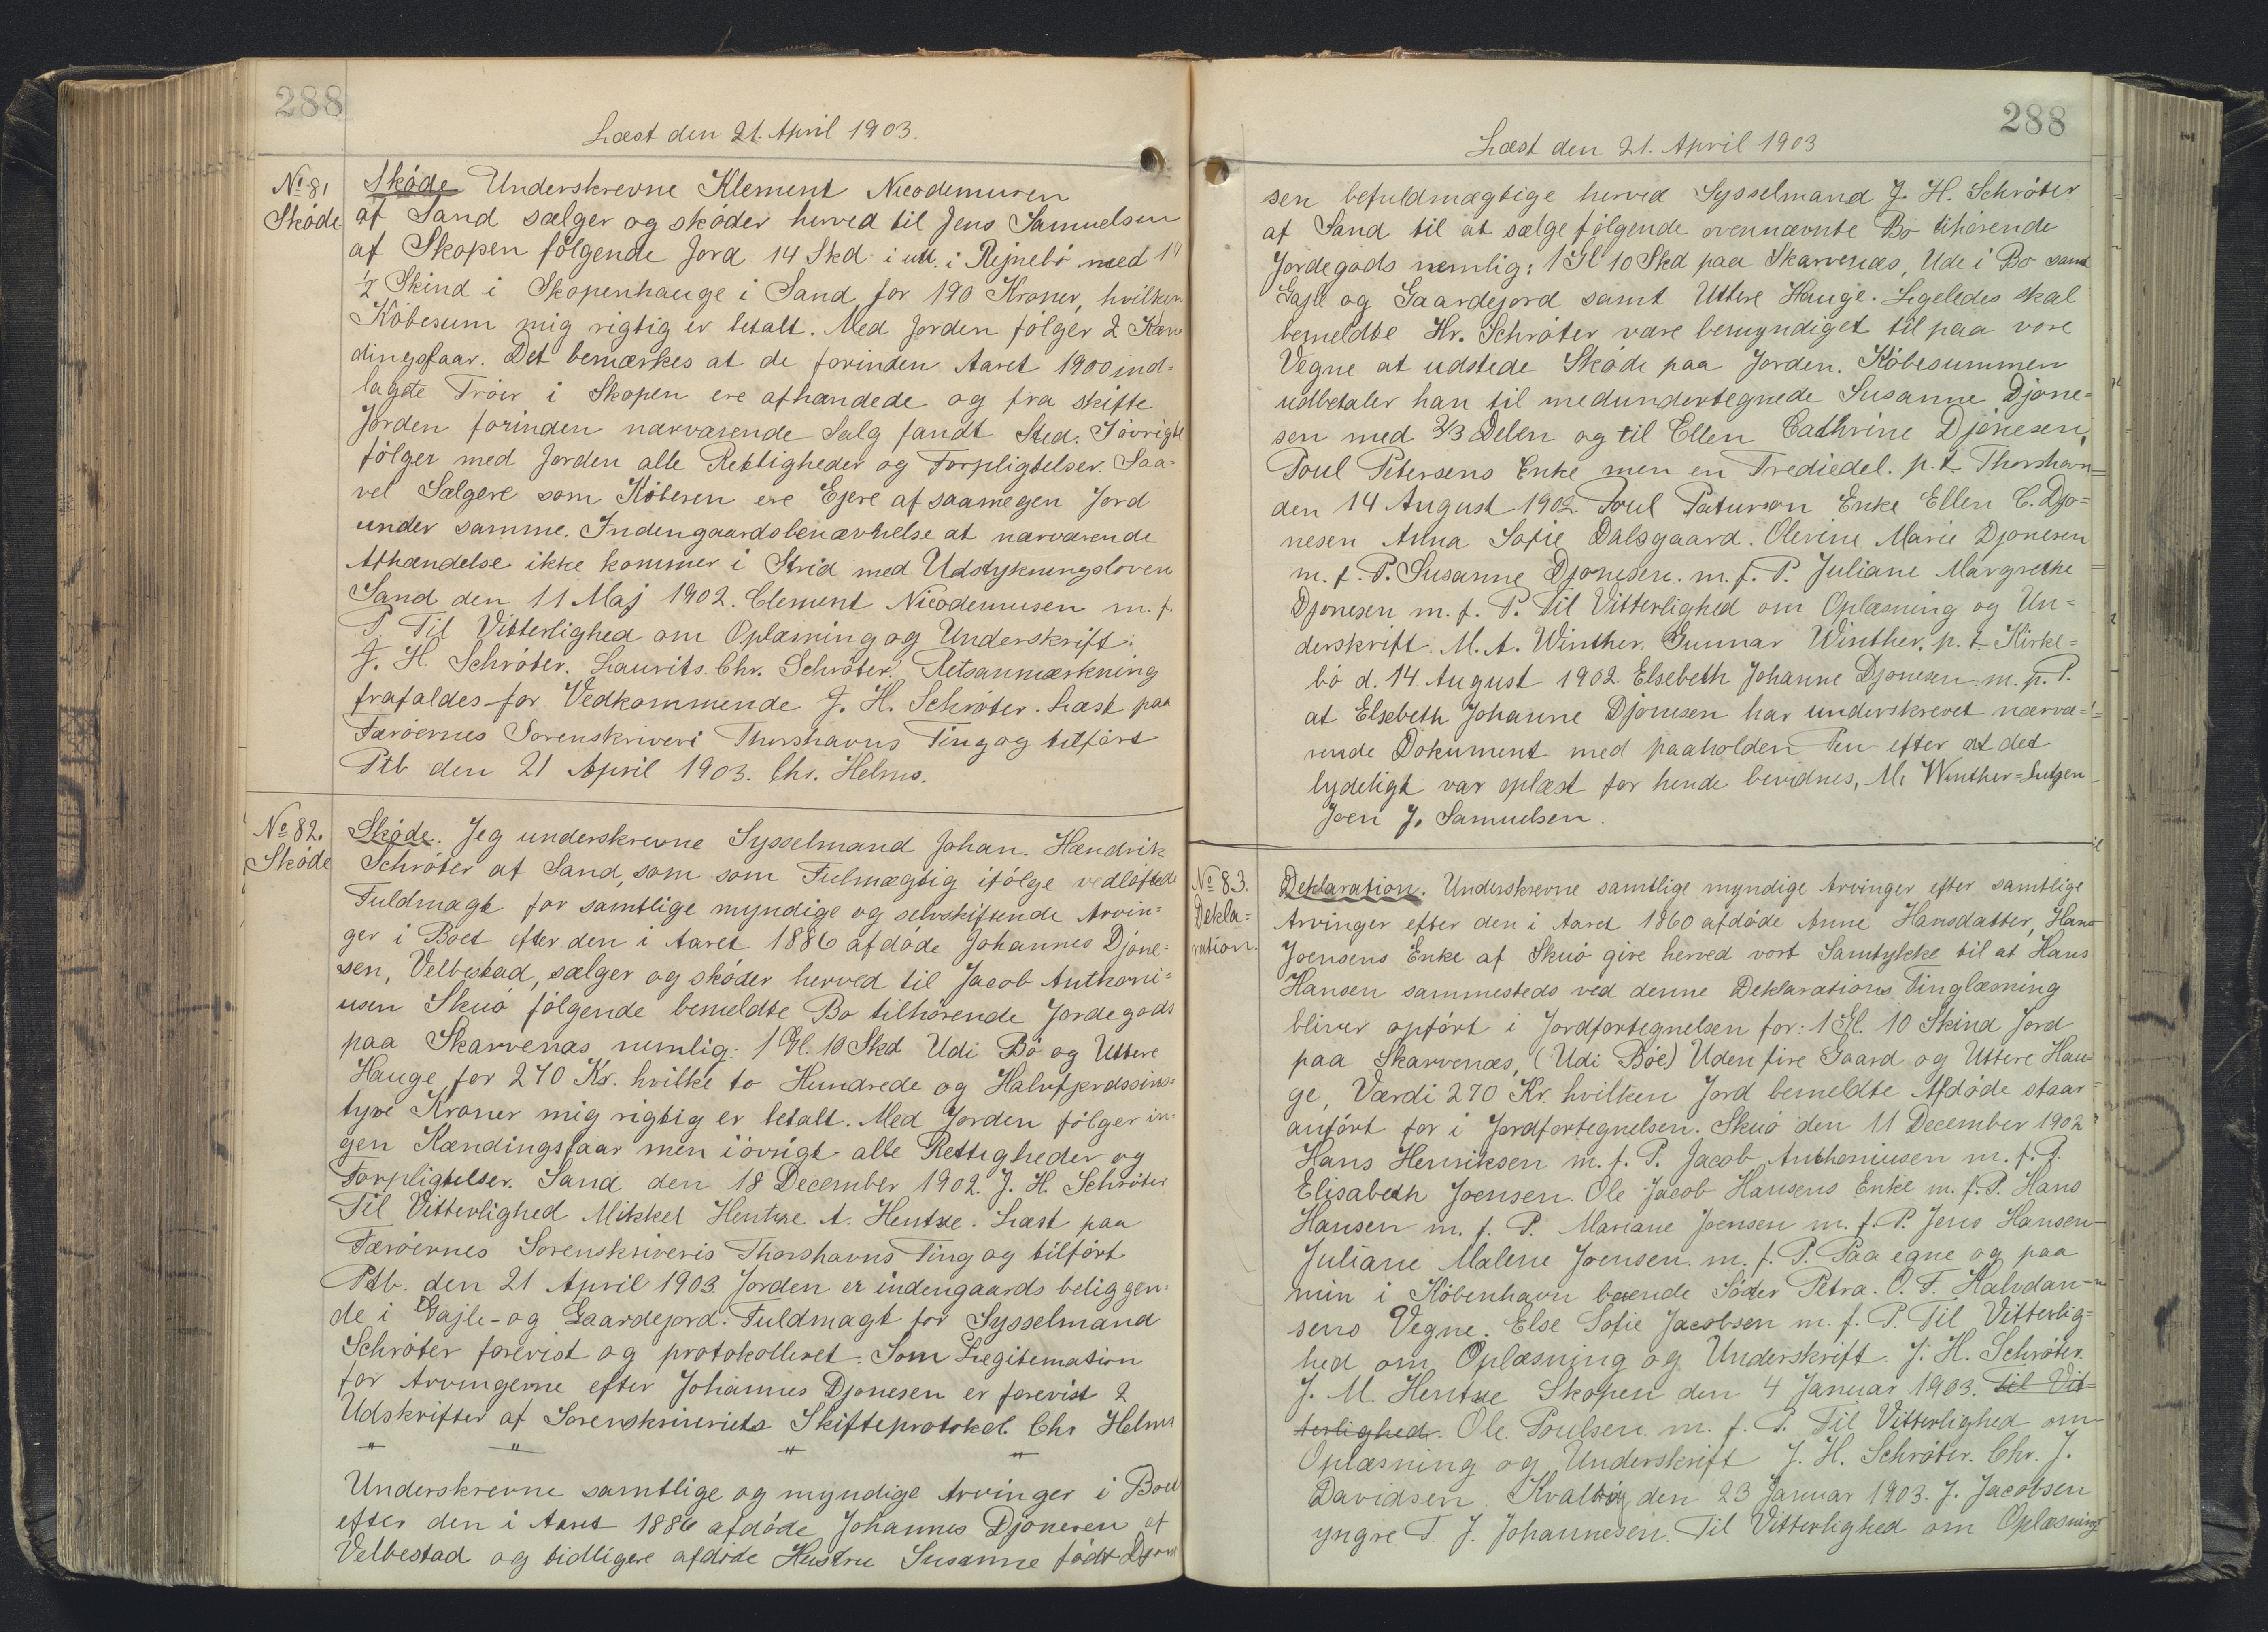 288
Læst den 21. April 1903.
No 81
Skøde
Skøde Underskrevne Klement Nicodemusen
af Sand sælger og skøder herved til Jens Samuelsen
af Skopen følgende Jord 14 Skd. i ud. i Rejnebø med 1"
½ Skind i Skopenhauge i Sand for 190 Kroner, hvilken
Købesum mig rigtig er betalt. Med Jorden følger 2 Kæn
dingsfaar. Det bemærkes at de forinden Aaret 1900 ind=
lagte Trøer i Skopen ere afhændede og fra skifte
Jorden forinden nærværende Salg fandt Sted. Iøvrigt
følger med Jorden alle Rettigheder og Forpligtelser. Saa=
vel Sælgere som Køberen ere Ejere af saamegen Jord
under samme. Indengaardsbenævnelse at nærværende
Afhændelse ikke kommer i Strid med Udstykningsloven
Sand den 11 Maj 1902. Clement Nicodemusen m. f.
P. Til Vitterlighed om Oplæsning og Underskrift:
J. H. Schrøter. Laurits. Chr. Schrøter. Retsanmærkning
frafaldes for Vedkommende J. H. Schrøter. Læst paa
Færøernes Sorenskriveri Thorshavns Ting og tilført
Ptb den 21 April 1903. Chr. Helms.
No 82.
Skøde
Skøde. Jeg underskrevne Sysselmand Johan. Hændrik
Schrøter af Sand, som som Fulmægtig ifølge vedløftede
Fuldmagt for samtlige myndige og selvskiftende Arvin=
ger i Boet efter den i Aaret 1886 afdøde Johannes Djone=
sen, Velbestad, sælger og skøder herved til Jacob Anthoni=
usen Skuø følgende bemeldte Bo tilhørende Jordegods
paa Skarvenæs nemlig: 1 Gl. 10 Skd Udi Bø og Uttere
Hauge for 270 Kr. hvilke to Hundrede og Halvfjerdssins=
tyve Kroner mig rigtig er betalt. Med Jorden følger in=
gen Kændingsfaar men iøvrigt alle Rettigheder og
Forpligtelser. Sand den 18 December 1902. J. H. Schrøter
Til Vitterlighed Mikkel Hentze A. Hentze. Læst paa
Færøernes Sorenskriveris Thorshavns Ting og tilført
Ptb. den 21 April 1903. Jorden er indengaards beliggen=
de i Gajle- og Gaardejord. Fuldmagt for Sysselmand
Schrøter forevist og protokolleret. Som Legitemation
for Arvingerne efter Johannes Djonesen er forevist 2
Udskrifter af Sorenskriveriets Skifteprotokol. Chr Helms
" " " "
Underskrevne samtlige og myndige Arvinger i Boet
efter den i Aaret 1886 afdøde Johannes Djonesen af
Velbestad og tidligere afdøde Hustru Susanne født Djone
288
Læst den 21. April 1903
sen befuldmægtige herved Sysselmand J. H. Schrøter
af Sand til at sælge følgende ovennævnte Bo tihørende
Jordegods nemlig: 1 Gl 10 Skd paa Skarvenæs, Ude i Bø samt
Gajle og Gaardejord samt Uttere Hauge. Ligeledes skal
bemeldte Hr. Schrøter være bemyndiget til paa vore
Vegne at udstede Skøde paa Jorden. Købesummen
udbetaler han til medundertegnede Susanne Djone=
sen med 2/3 Delen og til Ellen Cathrine Djonesen,
Poul Petersens Enke men en Trediedel. p. t. Thorshavn
den 14 August 1902. Poul Patursson Enke Ellen C. Djo=
nesen Anna Sofie Dalsgaard. Olevine Marie Djonesen
m. f. P. Susanne Djonesen. m. f. P. Juliane Margrethe
Djonesen m. f. P. Til Vitterlighed om Oplæsning og Un=
derskrift. M. A. Winther. Gunnar Winther. p. t. Kirke=
bø d. 14 August 1902. Elsebeth Johanne Djonesen m. p. P.
at Elsebeth Johanne Djonesen har underskrevet nærvæ=
rende Dokument med paaholden Pen efter at det
lydeligt var oplæst for hende bevidnes, M. Winther=Lutzen
Joen J. Samuelsen.
No 83.
Dekla=
ration.
Deklaration. Underskrevne samtlige myndige Arvinger efter samtlige
Arvinger efter den i Aaret 1860 afdøde Anne Hansdatter, Hans
Joensens Enke af Skuø give herved vort Samtykke til at Hans
Hansen sammesteds ved denne Deklarations Tinglæsning
bliver opført i Jordfortegnelsen for: 1 Gl. 10 Skind Jord
paa Skarvenæs, (Udi Bøe) Uden fire Gaard og Uttere Hau=
ge, Værdi 270 Kr. hvilken Jord bemeldte Afdøde staar
anført for i Jordfortegnelsen. Skuø den 11 December 1902
Hans Henriksen m. f. P. Jacob Anthoniusen m. f. P.
Elisabeth Joensen. Ole Jacob Hansens Enke m. f. P. Hans
Hansen m. f. P. Mariane Joensen m. f. P. Jens Hansen
Juliane Malene Joensen. m. f. P. Paa egne og paa
min i København boende Søster Petra. O. F. Halvdan=
sens Vegne. Else Sofie Jacobsen m. f. P. Til Vitterlig=
hed om Oplæsning og Underskrift. J. H. Schrøter.
J. M. Hentze Skopen den 4 Januar 1903. Til Vit=
terlighed. Ole. Poulsen. m. f. P. Til Vitterlighed om
Oplæsning og Underskrift J. H. Schrøter. Chr. J.
Davidsen. Kvalbøy den 23 Januar 1903. J. Jacobsen
yngre T. J. Johannesen. Til Vitterlighed om Oplæsning